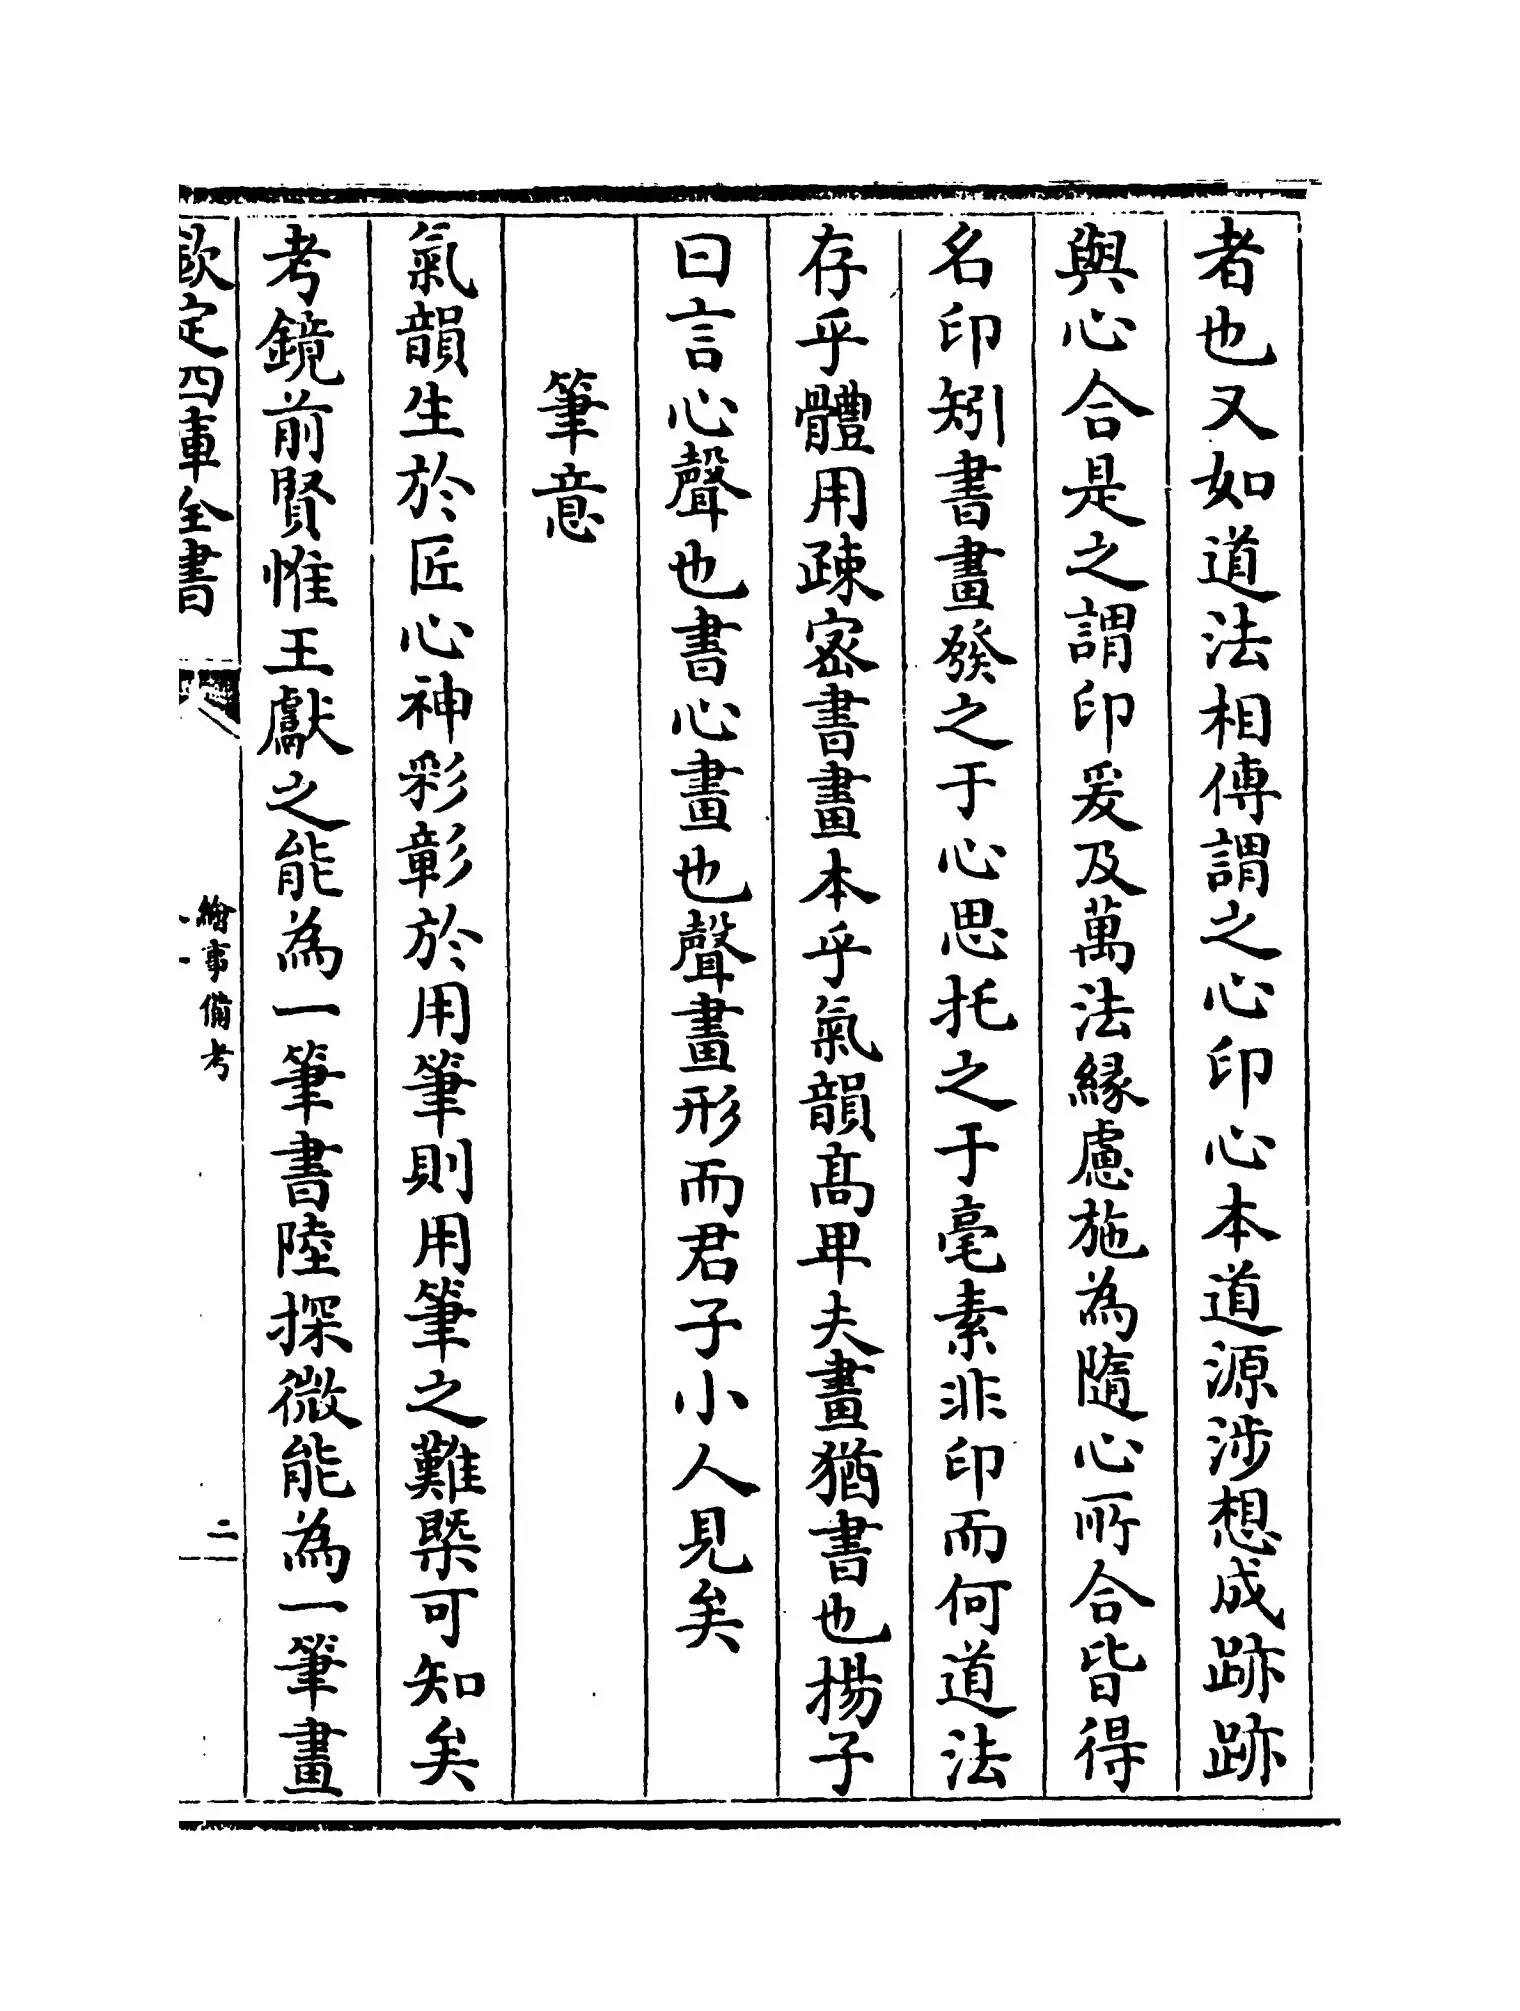 者也又如道法相傳謂之心印心本道源涉想成跡跡
與心合是之謂印爰及萬法縁慮施為隨心所合皆得
名印矧書畫發之于心思托之于毫素非印而何道法
存乎體用疎密書畫本乎氣韻高卑夫畫猶書也揚子
曰言心聲也書心畫也聲畫形而君子小人見矣
筆意
氣韻生於匠心神彩彰於用筆則用筆之難槩可知矣
考鏡前賢惟王獻之能為一筆書陸探微能為一筆畫
欽定四庫全書
繪事備考
二